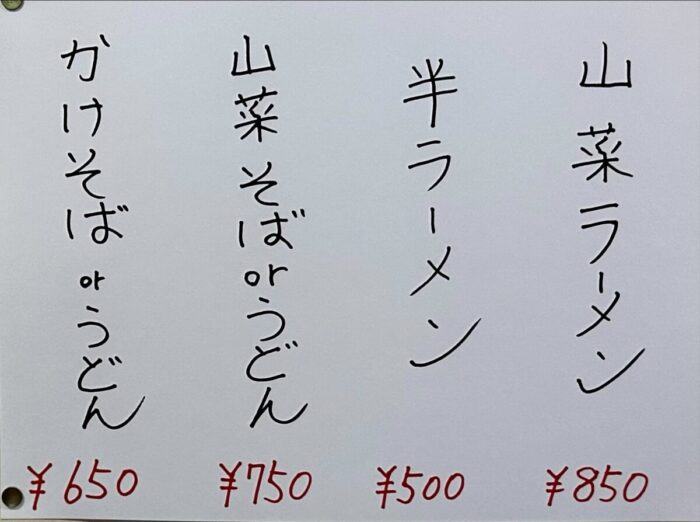 山菜ラーメン
¥850
半ラーメン
¥500
山菜そばorうどん
¥750
かけそばorうどん
¥650